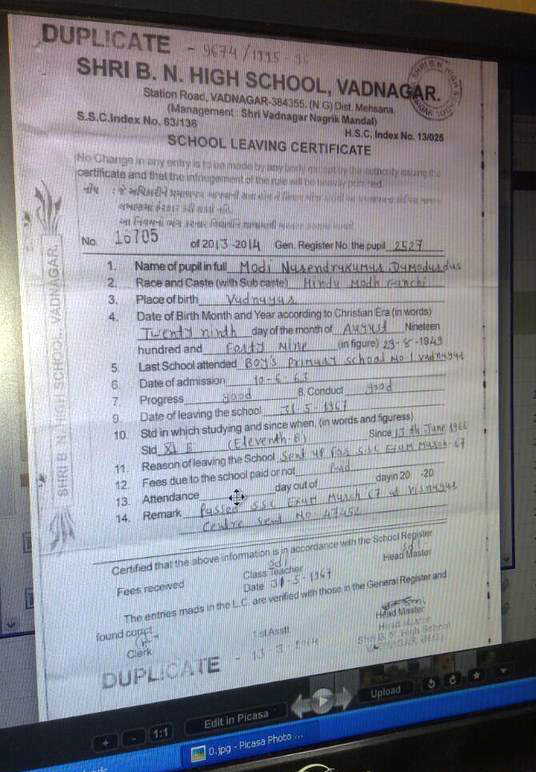 DUPLICATE - 9674/1995-96
SHRI B. N. HIGH SCHOOL, VADNAGAR.
Station Road, VADNAGAR-384355. (N G) Dist. Mehsana.
(Management : Shri Vadnagar Nagrik Mandal)
S.S.C.Index No. 63/136 H.S.C. Index No. 13/025
SCHOOL LEAVING CERTIFICATE
No Change in any entry is to be made by any body except by the authority issuing the
certificate and that the infringement of the rule will be
No. 16705 of 2013-2014 Gen. Register No. the pupil 2527
1. Name of pupil in full Modi Narendrakumar Damodardas
2. Race and Caste (with Sub caste) Hindu Modh Ganchi
3. Place of birth Vadnagar
4. Date of Birth Month and Year according to Christian Era (in words)
Twenty ninth day of the month of August Nineteen
hundred and Forty Nine (in figure) 29-8-1949
5. Last School attended Boy's Primary school No 1 Vadnagar
6. Date of admission 10-6-63
7. Progress good 8. Conduct good
9. Date of leaving the school 31-5-1967
10. Std in which studying and since when, (in words and figuress)
Std XI B (Eleventh-B) Since 13th June 1966
11. Reason of leaving the School Sent up for S.S.C Exam March-67
12. Fees due to the school paid or not Paid
13. Attendance day out of dayin 20 -20
14. Remark Passed SSC Exam March 67 at Visnagar
Centre Seat No. 47452
Certified that the above information is in accordance with the School Register
Sd/ Sd/
Fees received Class Teacher Head Master
Date 31-5-1967
The entries mads in the L.C. are verified with those in the General Register and
found corect
Clerk 1 st Asstt. Head Master
Head Master
Shri B. N. High School
DUPLICATE - 13-3-2014
SHRI B. N. HIGH SCHOOL, VADNAGAR.
Edit in Picasa
Upload
1:1
0.jpg - Picasa Photo ...